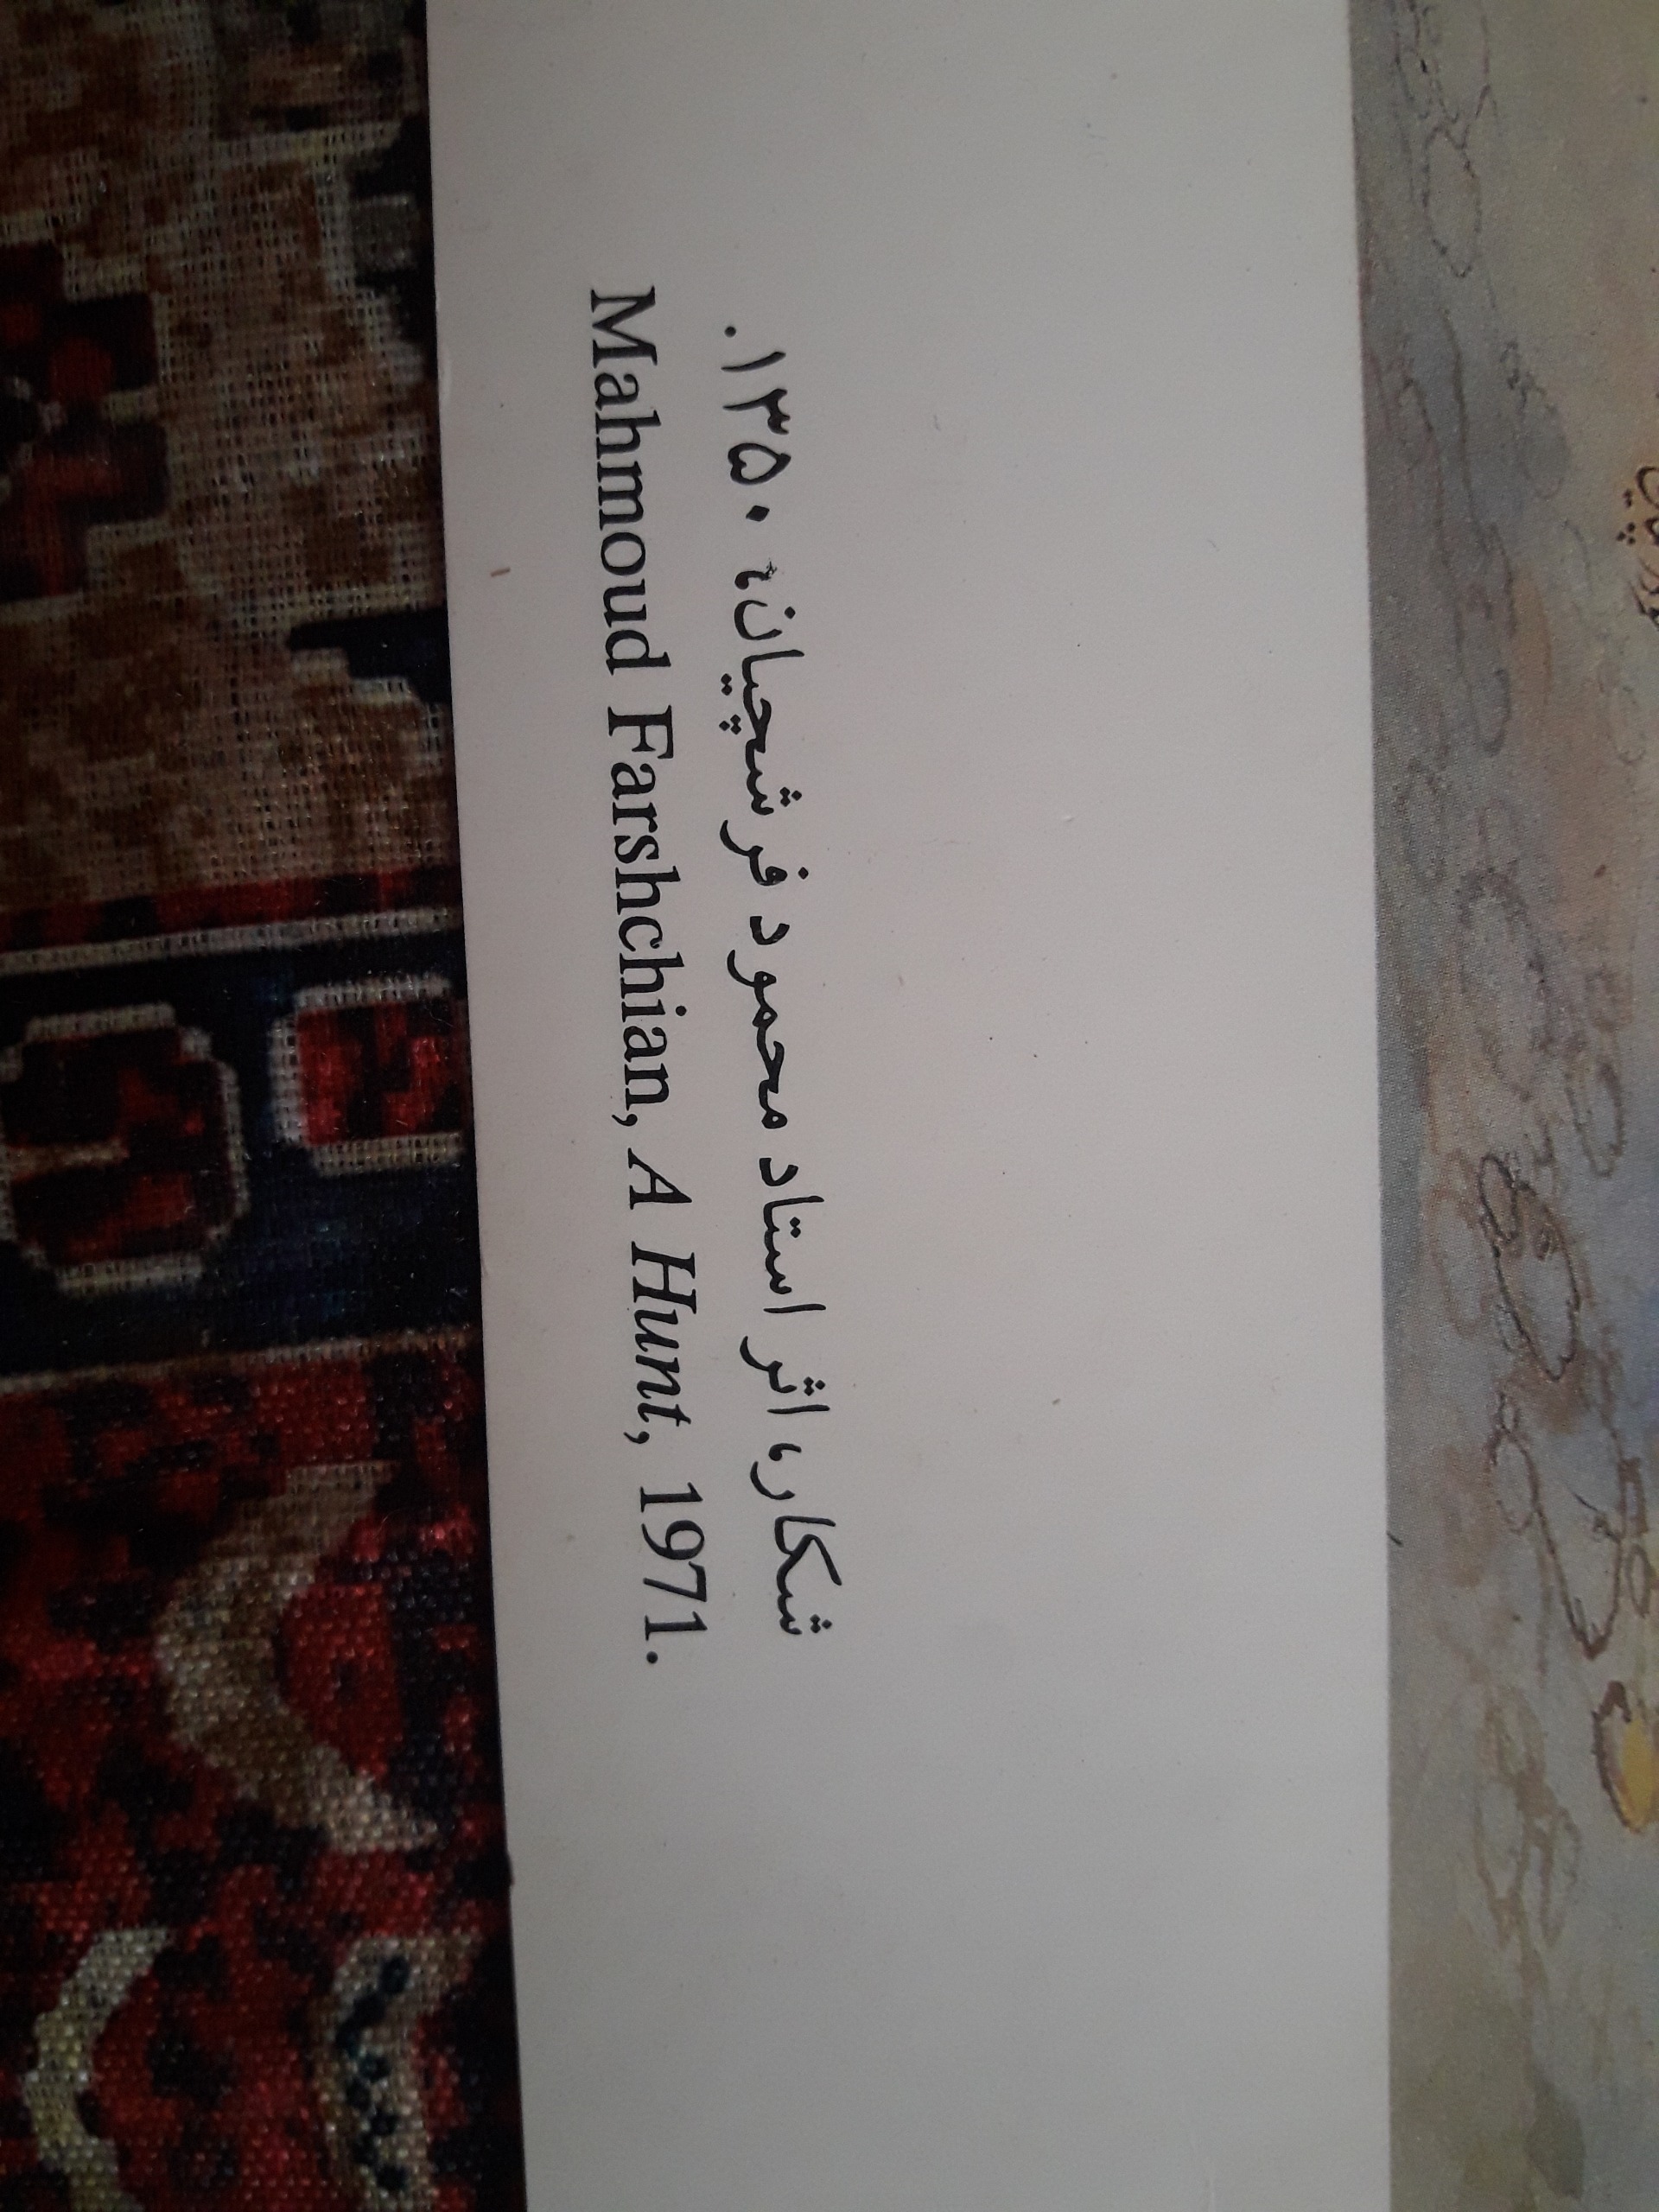 شکار، اثر استاد محمود فرشچیان، ۱۳۵۰.
Mahmoud Farshchian, A Hunt, 1971.